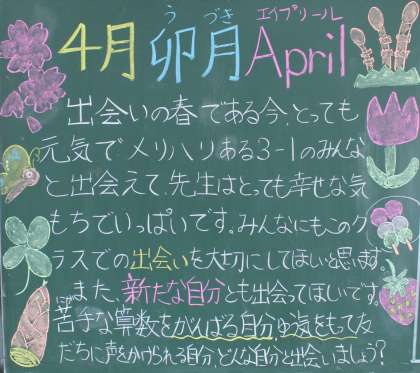 う づき エイプリール
4月 卯月 April
出会いの春である今、とっても
元気でメリハリある3-1のみんな
と出会えて、先生はとっても幸せな気
もちでいっぱいです。みんなにもこのク
ラスでの出会いを大切にしてほしいと思います。
また、新たな自分とも出会ってほしいです。
にがて
苦手な算数をがんばる自分、勇気をもって友
だちに声をかけられる自分、どんな自分と出会いましょう?